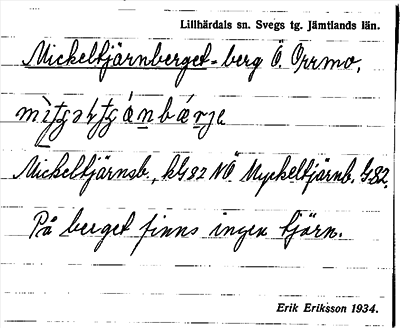 Lillhärdals sn. Svegs tg. Jämtlands län.
Mickeltjärnberget = berg Ö. Orrmo.
Mickeltjärnsb., kG82 NÖ. Myckeltjärnb. G82.
På berget finns ingen tjörn.
Erik Eriksson 1934.